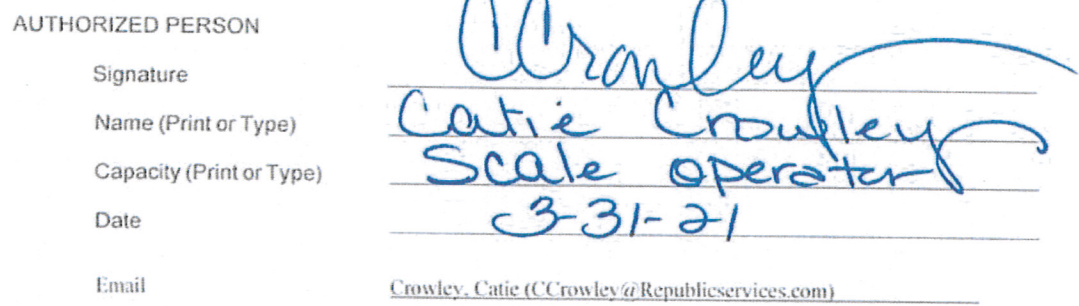 AUTHORIZED PERSON
Signature CCrowley
Name (Print or Type) Catie Crowley
Capacity (Print or Type) Scale operator
Date 3-31-21
Email Crowley, Catie (CCrowley@Republicservices.com)